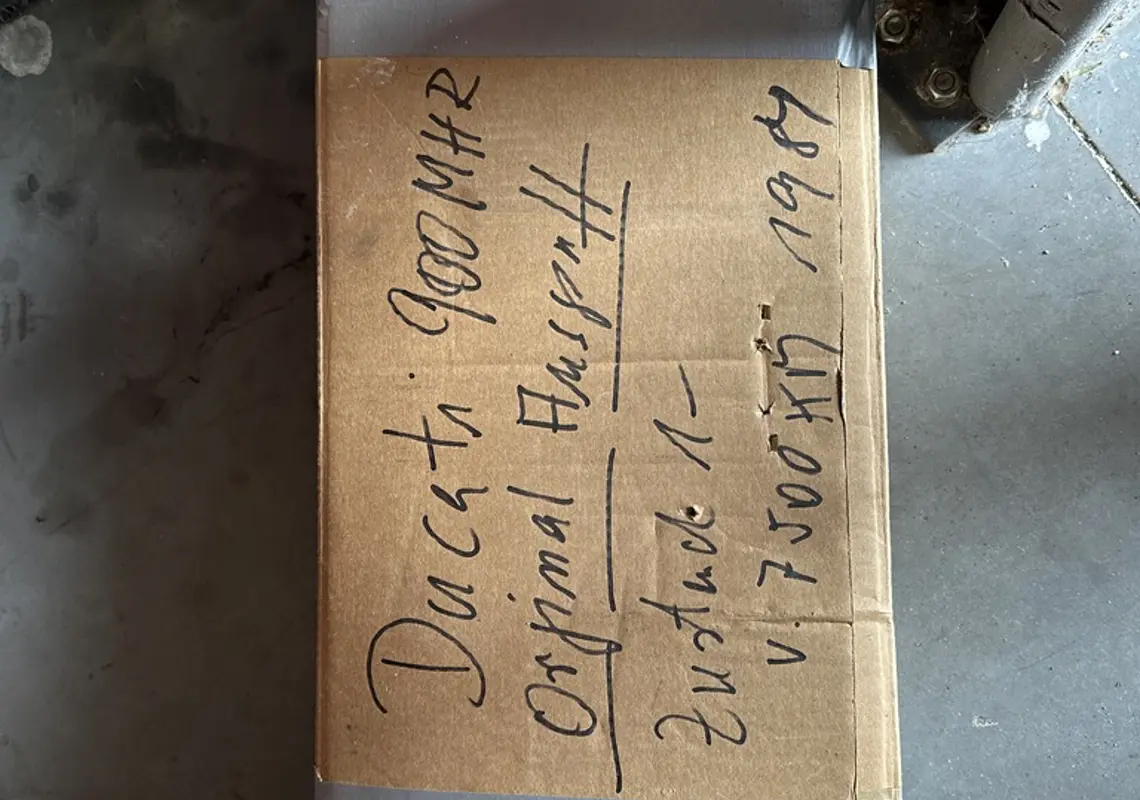 Ducati 900 MHR
Original Auspuff
Zustand 1-
v. 7500 KM 1984